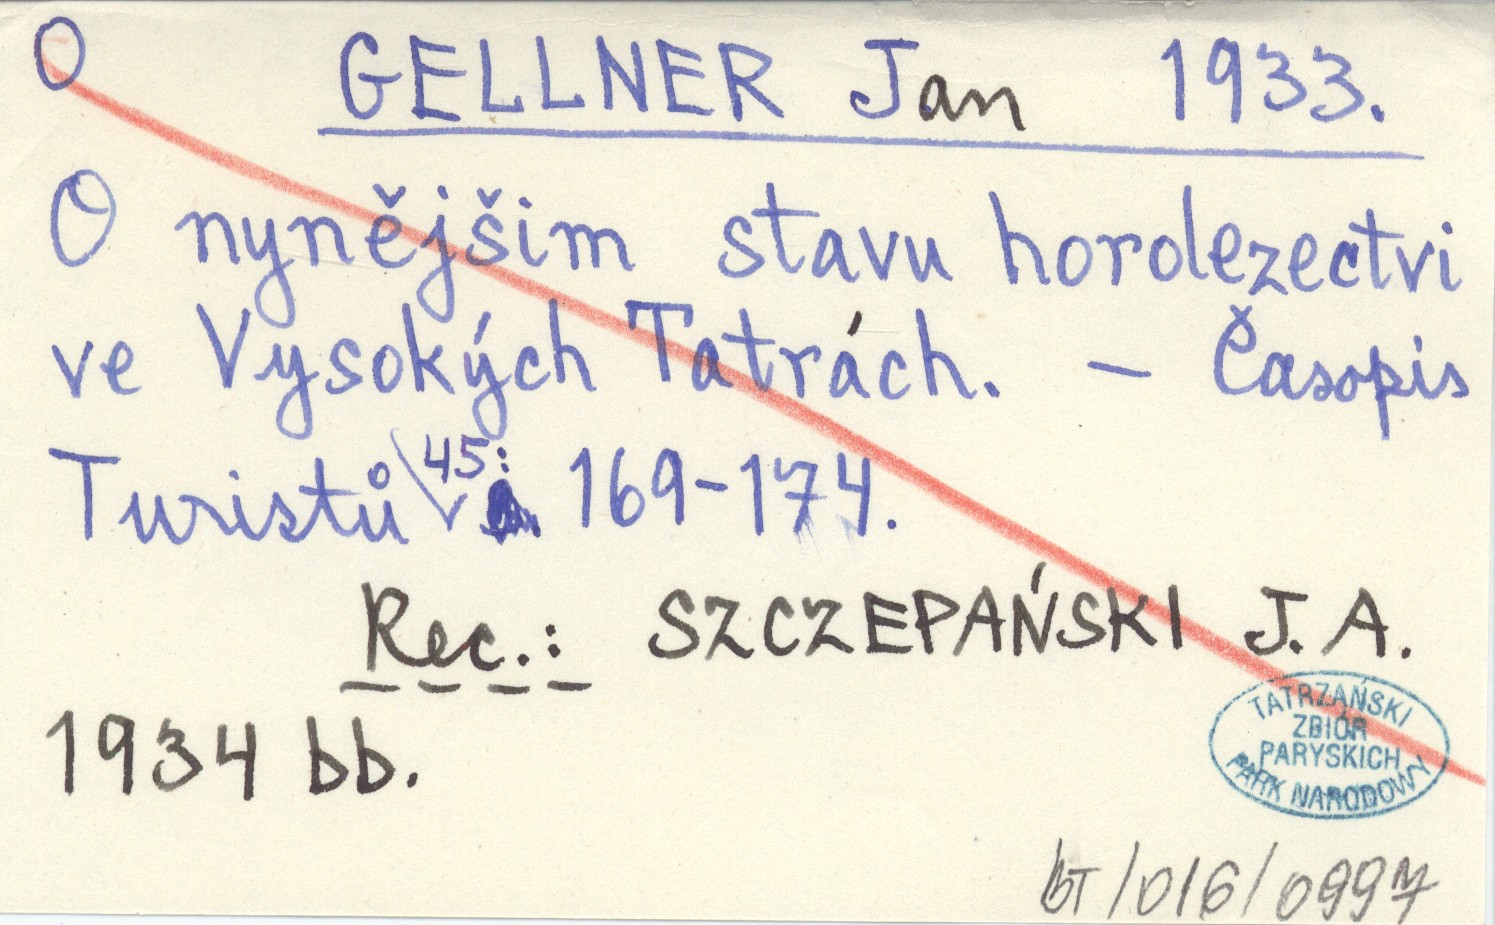 O
GELLNER Jan 1933.
O nynějšim stavu horolezectvi
ve Vysokých Tatrách. – Časopis
Turistů 45: 169-174.
Rec.: SZCZEPAŃSKI J. A.
1934 bb.
TATRZAŃSKI
ZBIÓR
PARYSKICH
PARK NARODOWY
bT/016/0997